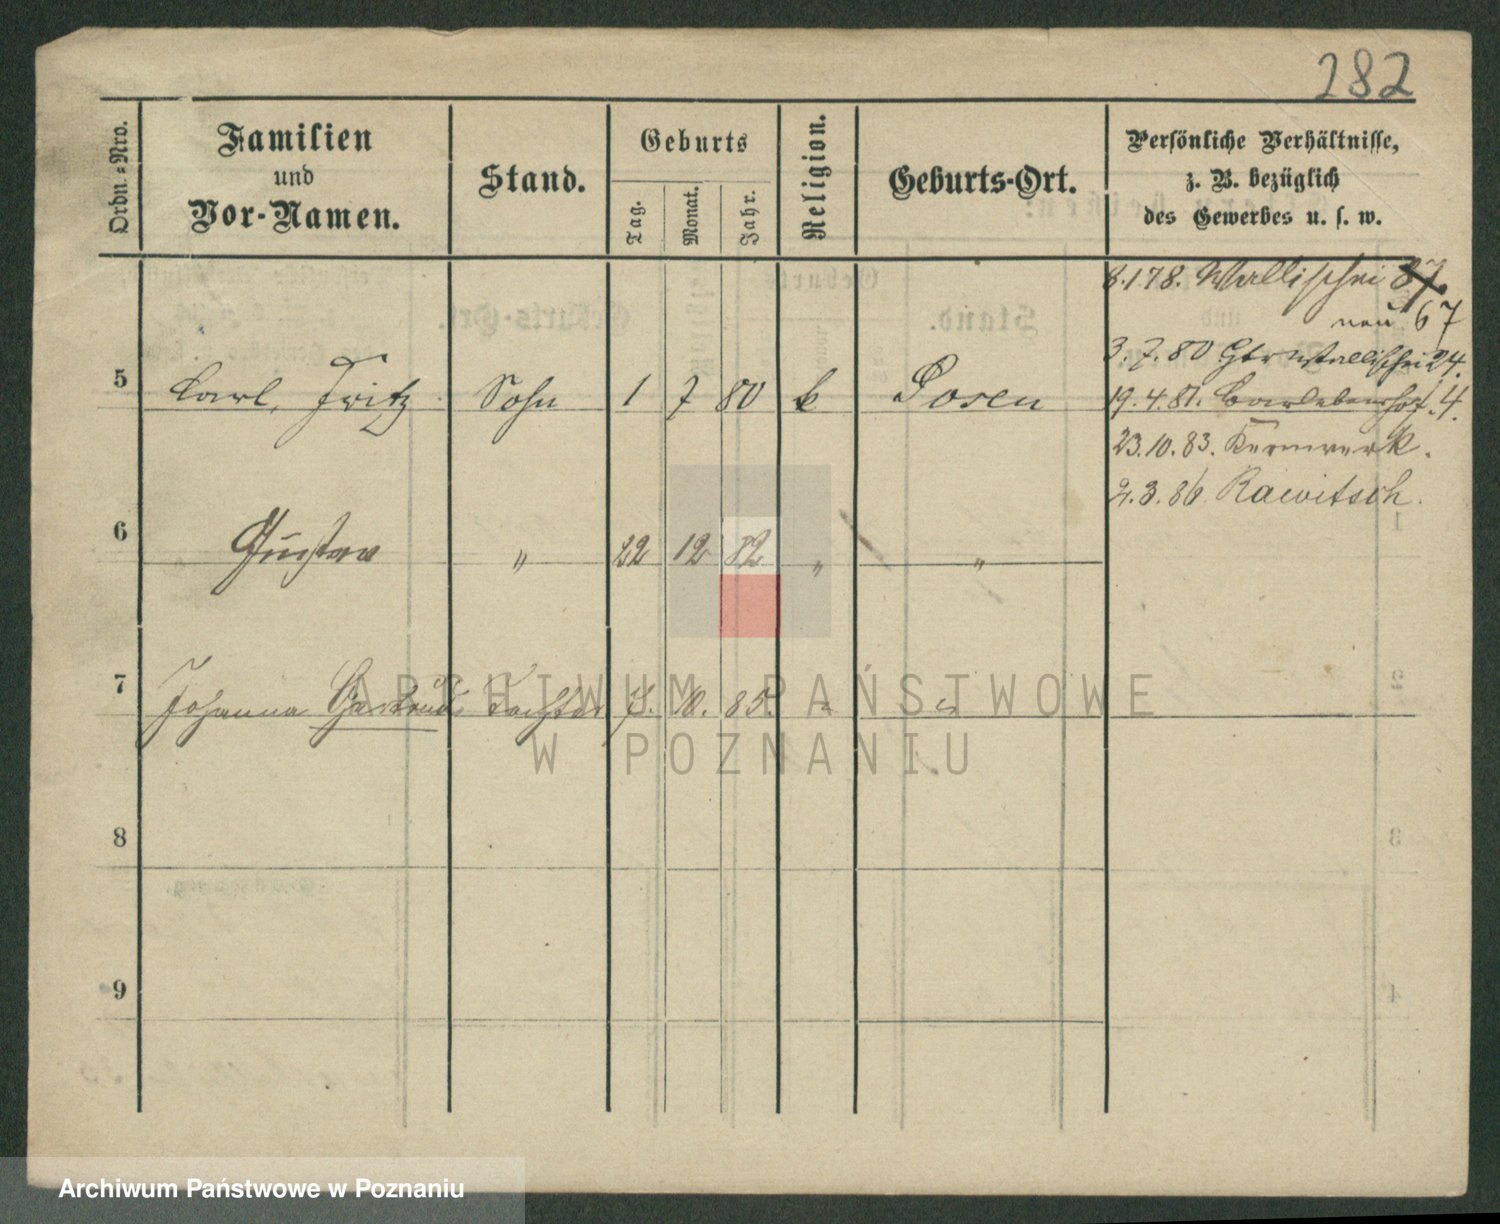 282
Ordn.-Nro.
Familien
und
Vor-Namen.
Stand.
Geburts
Tag.
Monat.
Jahr.
Religion.
Geburts-Ort.
Persönliche Verhältnisse,
z. B. bezüglich
des Gewerbes u. s. w.
8.1.78. Wallischei 87.
neu 67
3.7.80 24.
19.4.81. 4.
23.10.83. Kernwerk.
2.3.86 Rawitsch.
5 Carl, Fritz Sohn 1 7 80 k Posen
6 Gustav " 22 12 82 " "
7 Johanna Gertrud Tochter 7. 10. 85. " "
8
9
ARCHIWUM PAŃSTWOWE
W POZNANIU
Archiwum Państwowe w Poznaniu